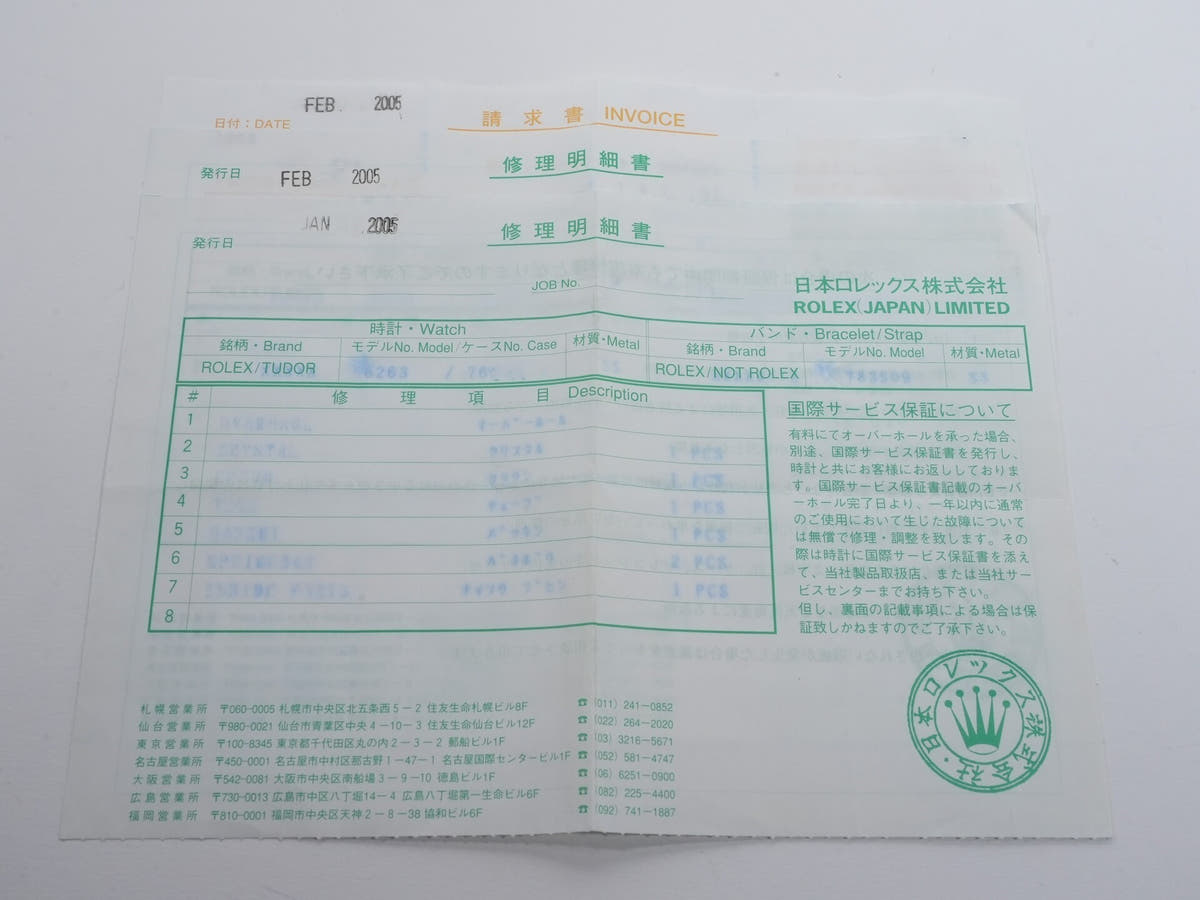 FEB. 2005
日付：DATE
請求書 INVOICE
修理明細書
発行日 FEB 2005
JAN 2005
修理明細書
発行日
JOB No.
日本ロレックス株式会社
ROLEX(JAPAN)LIMITED
時計・Watch
バンド・Bracelet/Strap
銘柄・Brand モデルNo. Model/ケースNo. Case 材質・Metal
銘柄・Brand モデルNo. Model 材質・Metal
ROLEX/TUDOR 6263 / 76
ROLEX/NOT ROLEX 78350 SS
# 修理項目 Description
1 オーバーホール
2 クリスタル 1 PCS
3 1 PCS
4 チューブ 1 PCS
5 1 PCS
6 2 PCS
7 1 PCS
8
国際サービス保証について
有料にてオーバーホールを承った場合、
別途、国際サービス保証書を発行し、
時計と共にお客様にお返ししておりま
す。国際サービス保証書記載のオーバ
ーホール完了日より、一年以内に通常
のご使用において生じた故障について
は無償で修理・調整を致します。その
際は時計に国際サービス保証書を添え
て、当社製品取扱店、または当社サー
ビスセンターまでお持ち下さい。
但し、裏面の記載事項による場合は保
証致しかねますのでご了承下さい。
札幌営業所 〒060-0005 札幌市中央区北五条西5－2 住友生命札幌ビル8F ☎(011) 241-0852
仙台営業所 〒980-0021 仙台市青葉区中央4－10－3 住友生命仙台ビル12F ☎(022) 264-2020
東京営業所 〒100-8345 東京都千代田区丸の内2－3－2 郵船ビル1F ☎(03) 3216-5671
名古屋営業所 〒450-0001 名古屋市中村区那古野1－47－1 名古屋国際センタービル1F ☎(052) 581-4747
大阪営業所 〒542-0081 大阪市中央区南船場3－9－10 徳島ビル1F ☎(06) 6251-0900
広島営業所 〒730-0013 広島市中区八丁堀14－4 広島八丁堀第一生命ビル6F ☎(082) 225-4400
福岡営業所 〒810-0001 福岡市中央区天神2－8－38 協和ビル6F ☎(092) 741-1887
日本ロレックス株式会社